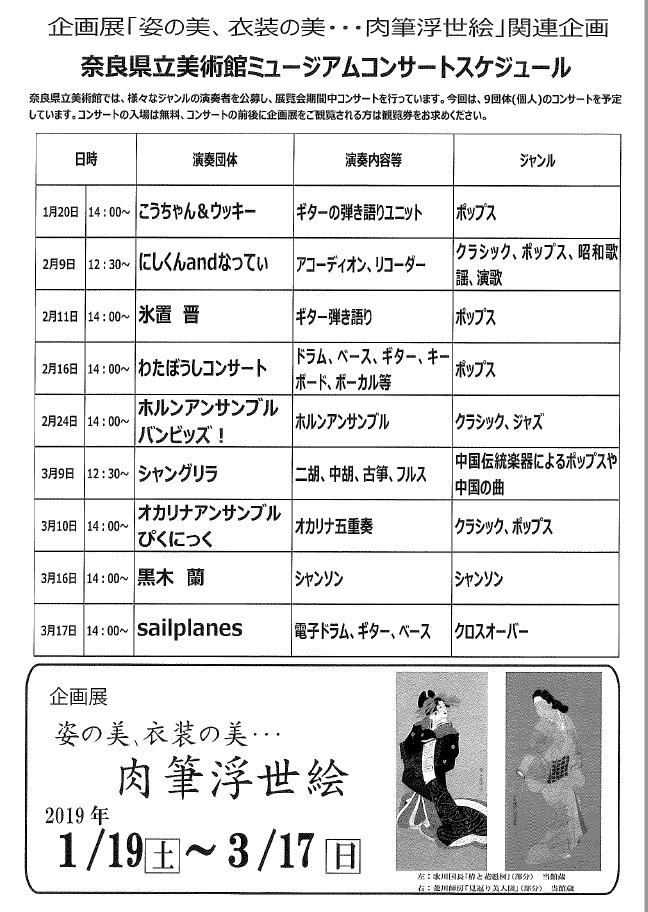 企画展「姿の美、衣装の美・・・肉筆浮世絵」関連企画
奈良県立美術館ミュージアムコンサートスケジュール
奈良県立美術館では、様々なジャンルの演奏者を公募し、展覧会期間中コンサートを行っています。今回は、9団体(個人)のコンサートを予定
しています。コンサートの入場は無料、コンサートの前後に企画展をご観覧される方は観覧券をお求めください。
日時 演奏団体 演奏内容等 ジャンル
1月20日 14：00～ こうちゃん＆ウッキー ギターの弾き語りユニット ポップス
2月9日 12：30～ にしくんandなってぃ アコーディオン、リコーダー クラシック、ポップス、昭和歌
謡、演歌
2月11日 14：00～ 氷置　晋 ギター弾き語り ポップス
2月16日 14：00～ わたぼうしコンサート ドラム、ベース、ギター、キー
ボード、ボーカル等 ポップス
2月24日 14：00～ ホルンアンサンブル
バンビッズ！ ホルンアンサンブル クラシック、ジャズ
3月9日 12：30～ シャングリラ 二胡、中胡、古箏、フルス 中国伝統楽器によるポップスや
中国の曲
3月10日 14：00～ オカリナアンサンブル
ぴくにっく オカリナ五重奏 クラシック、ポップス
3月16日 14：00～ 黒木　蘭 シャンソン シャンソン
3月17日 14：00～ sailplanes 電子ドラム、ギター、ベース クロスオーバー
企画展
姿の美、衣装の美･･･
肉筆浮世絵
2019年
1/19土～3/17日
左：歌川国長「椿と花魁図」（部分）　当館蔵
右：菱川師房「見返り美人図」（部分）　当館蔵